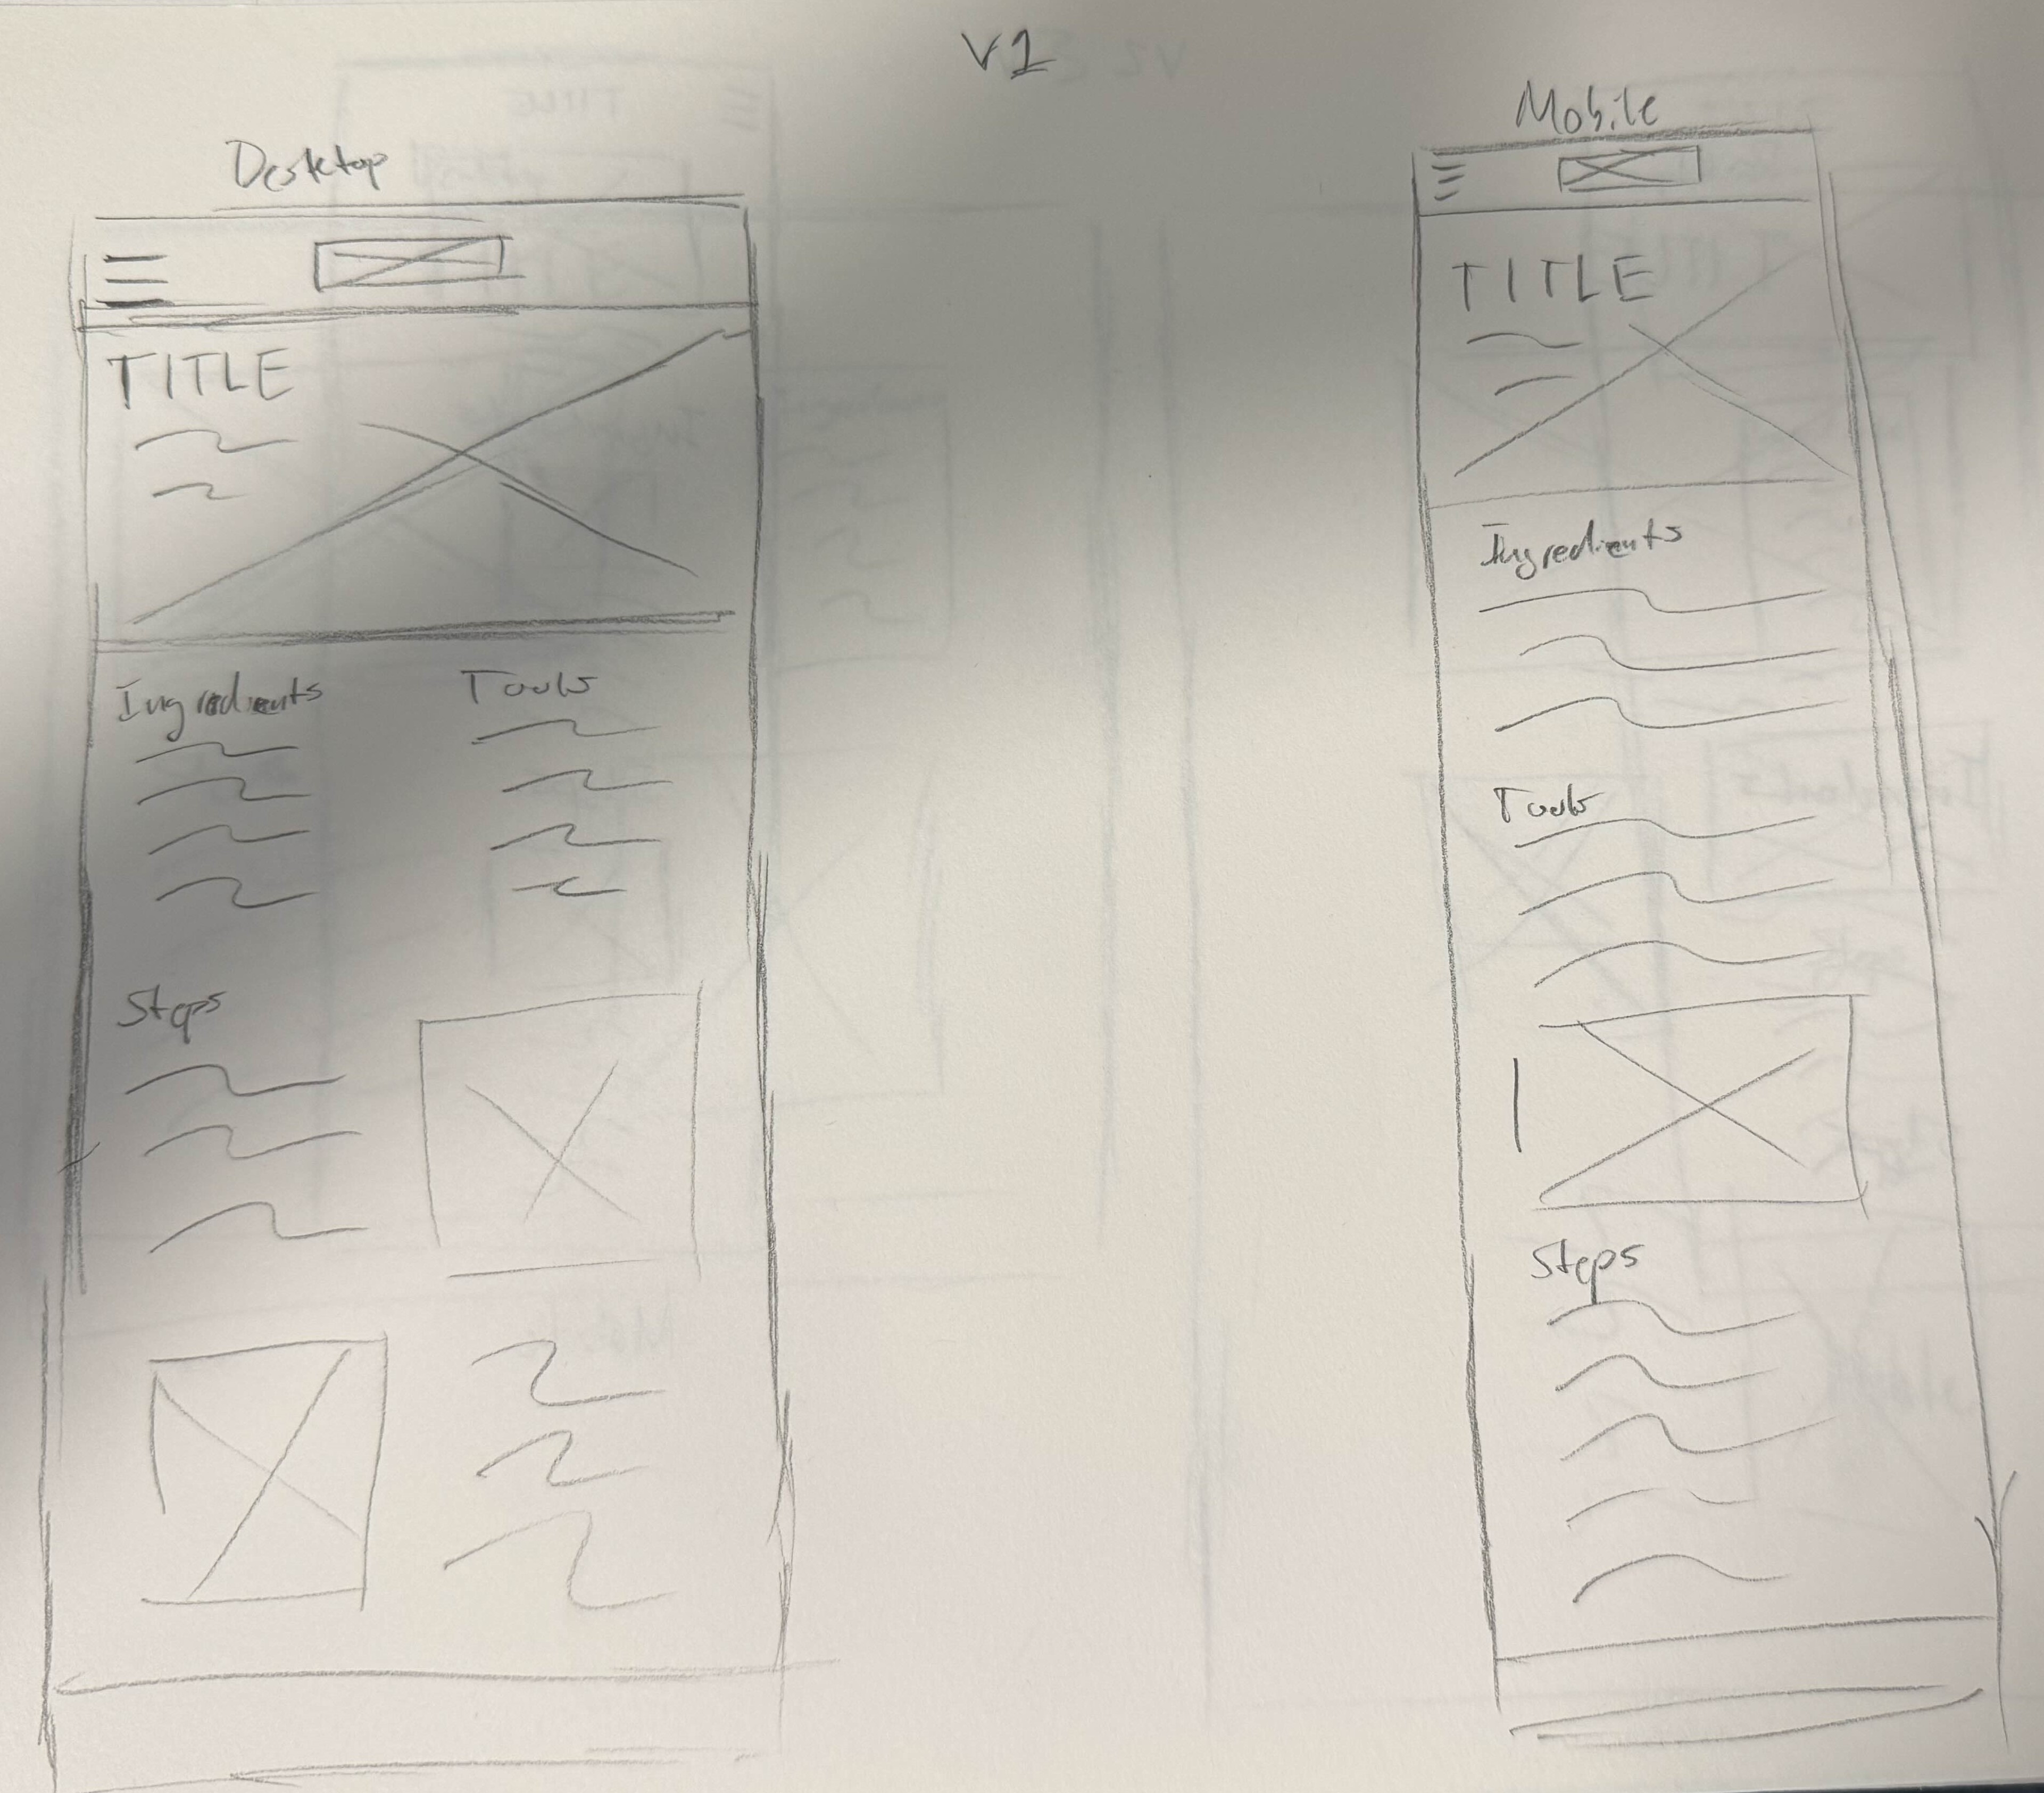 V1
Desktop
TITLE
Ingredients
Tools
Steps
Mobile
TITLE
Ingredients
Tools
Steps